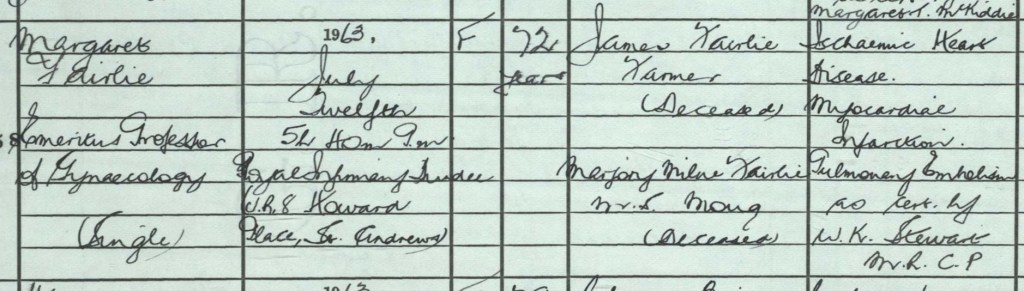 Margaret T. McKiddie
Margaret 1963. F 72 James Fairlie Ischaemic Heart
Fairlie July years Farmer Disease.
Twelfth (Deceased) Myocardial
Emeritus Professor 5h 40m P.m Infarction.
of Gynaecology Royal Infirmary Dundee Marjory Milne Fairlie Pulmonary Embolism
U.R. 8 Howard M.S. Moug as cert. by
(Single) Place, St. Andrews) (Deceased) W.K. Stewart
M.R.C.P
1963